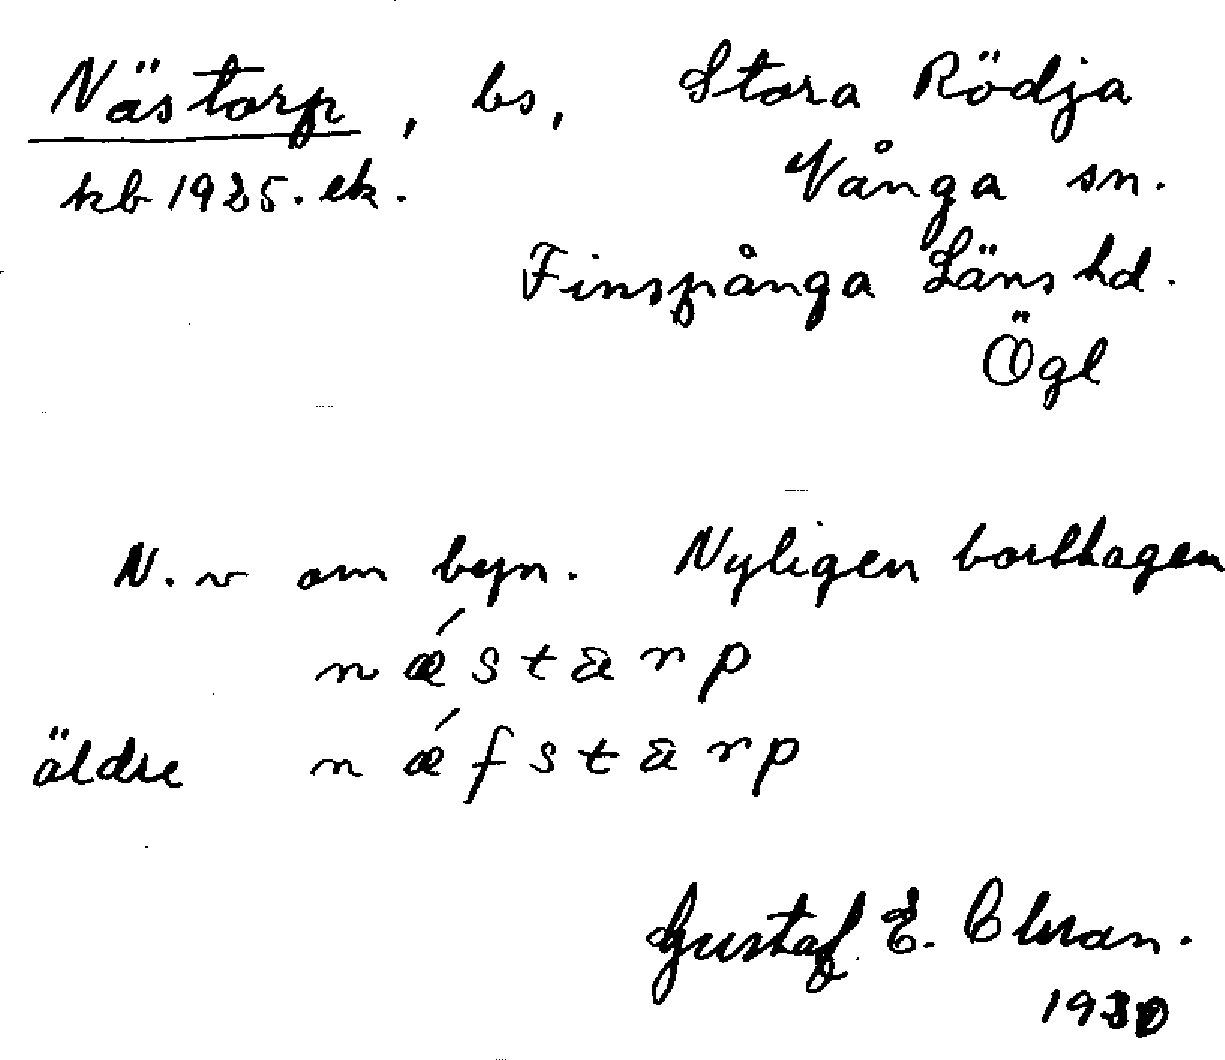 Nästorp, bs, Stora Rödja
kb 1925. ek. Vånga sn.
Finspånga Läns hd.
Ögl
N. v om byn. Nyligen borttagen
n ǽ s t a r p
äldre n ǽ f s t a r p
Gustaf E.
1930